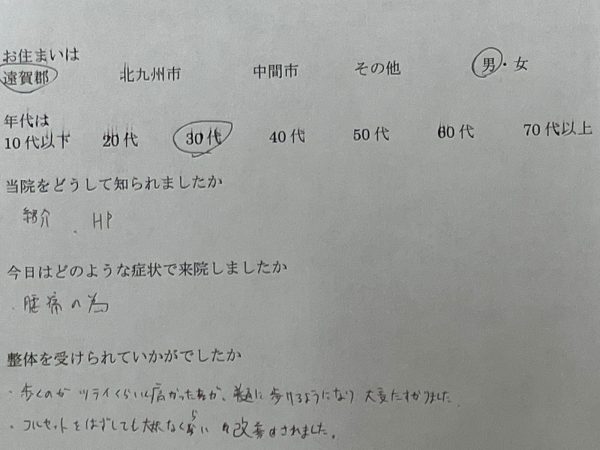 お住まいは
遠賀郡 北九州市 中間市 その他 男・女
年代は
10代以下 20代 30代 40代 50代 60代 70代以上
当院をどうして知られましたか
紹介 . HP
今日はどのような症状で来院しましたか
・腰痛の為
整体を受けられていかがでしたか
・歩くのがツライくらい痛かったのが、普通に歩けるようになり大変たすかりました.
・コルセットをはずしても大丈夫なくらい 改善されました。